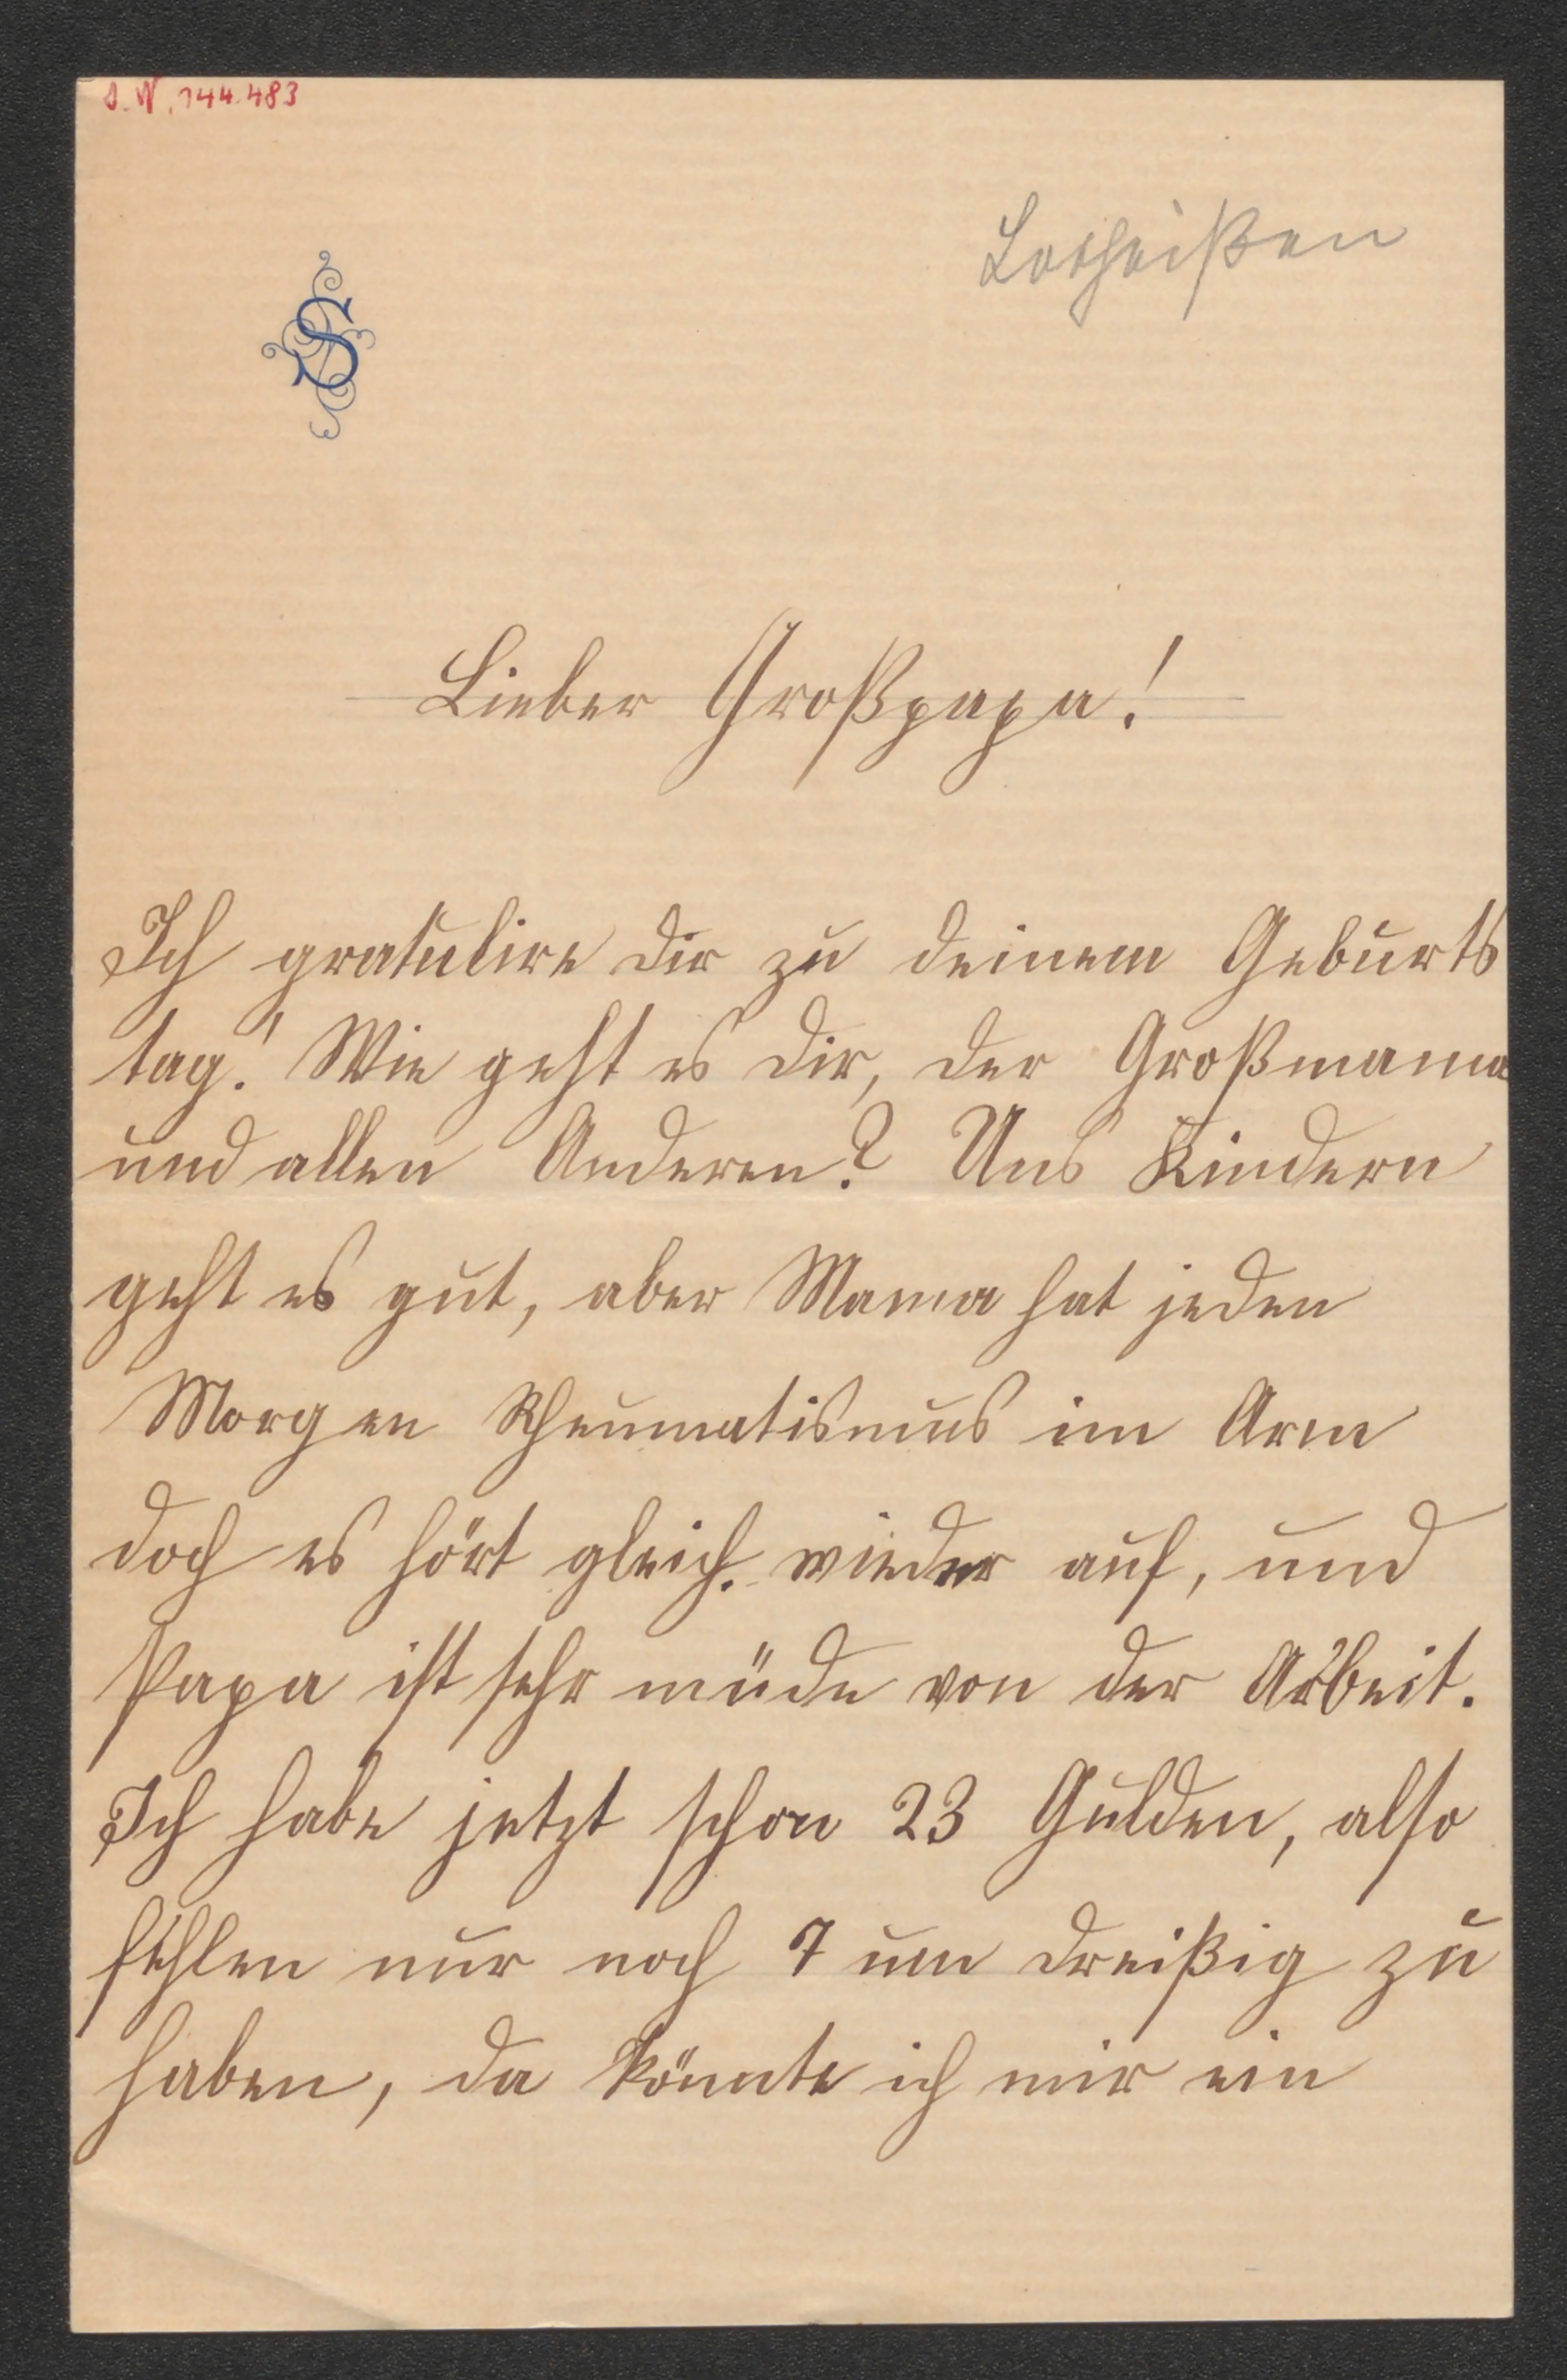 J. N. 144.483
Lotheißen
S
Lieber Großpapa!
Ich gratulire dir zu deinem Geburts
tag! Wie geht es dir, der Großmama
und allen Anderen? Uns Kindern
geht es gut, aber Mama hat jeden
Morgen Rheumatismus im Arm
doch es hört gleich wieder auf, und
Papa ist sehr müde von der Arbeit.
Ich habe jetzt schon 23 Gulden, also
fehlen nur noch 7 um dreißig zu
haben, da könnte ich mir ein